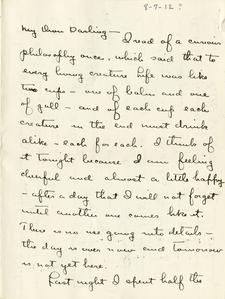 8-7-12?
My Own Darling—
I read of a curious
philosophy once, which said that to
every living creature life was like
two cups - one of balm and one
of gall - and of each cup each
creature in the end must drink
alike - each for each. I think of
it tonight because I am feeling
cheerful and almost a little happy
- after a day that I will not forget
until another one comes like it.
There is no use going into details -
the day is over now and tomorrow
is not yet here.
Last night I spent half the